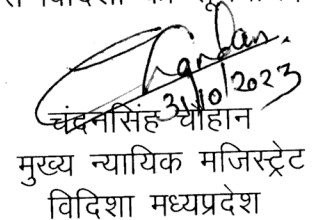 Chandan.
31/10/2023
चंदनसिंह चौहान
मुख्य न्यायिक मजिस्ट्रेट
विदिशा मध्यप्रदेश